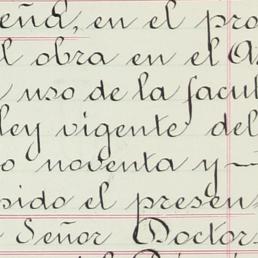 eña, en el pro
l obra en el A
uso de la facul
ley vigente del
o noventa y—
pido el presen
Señor Doctor